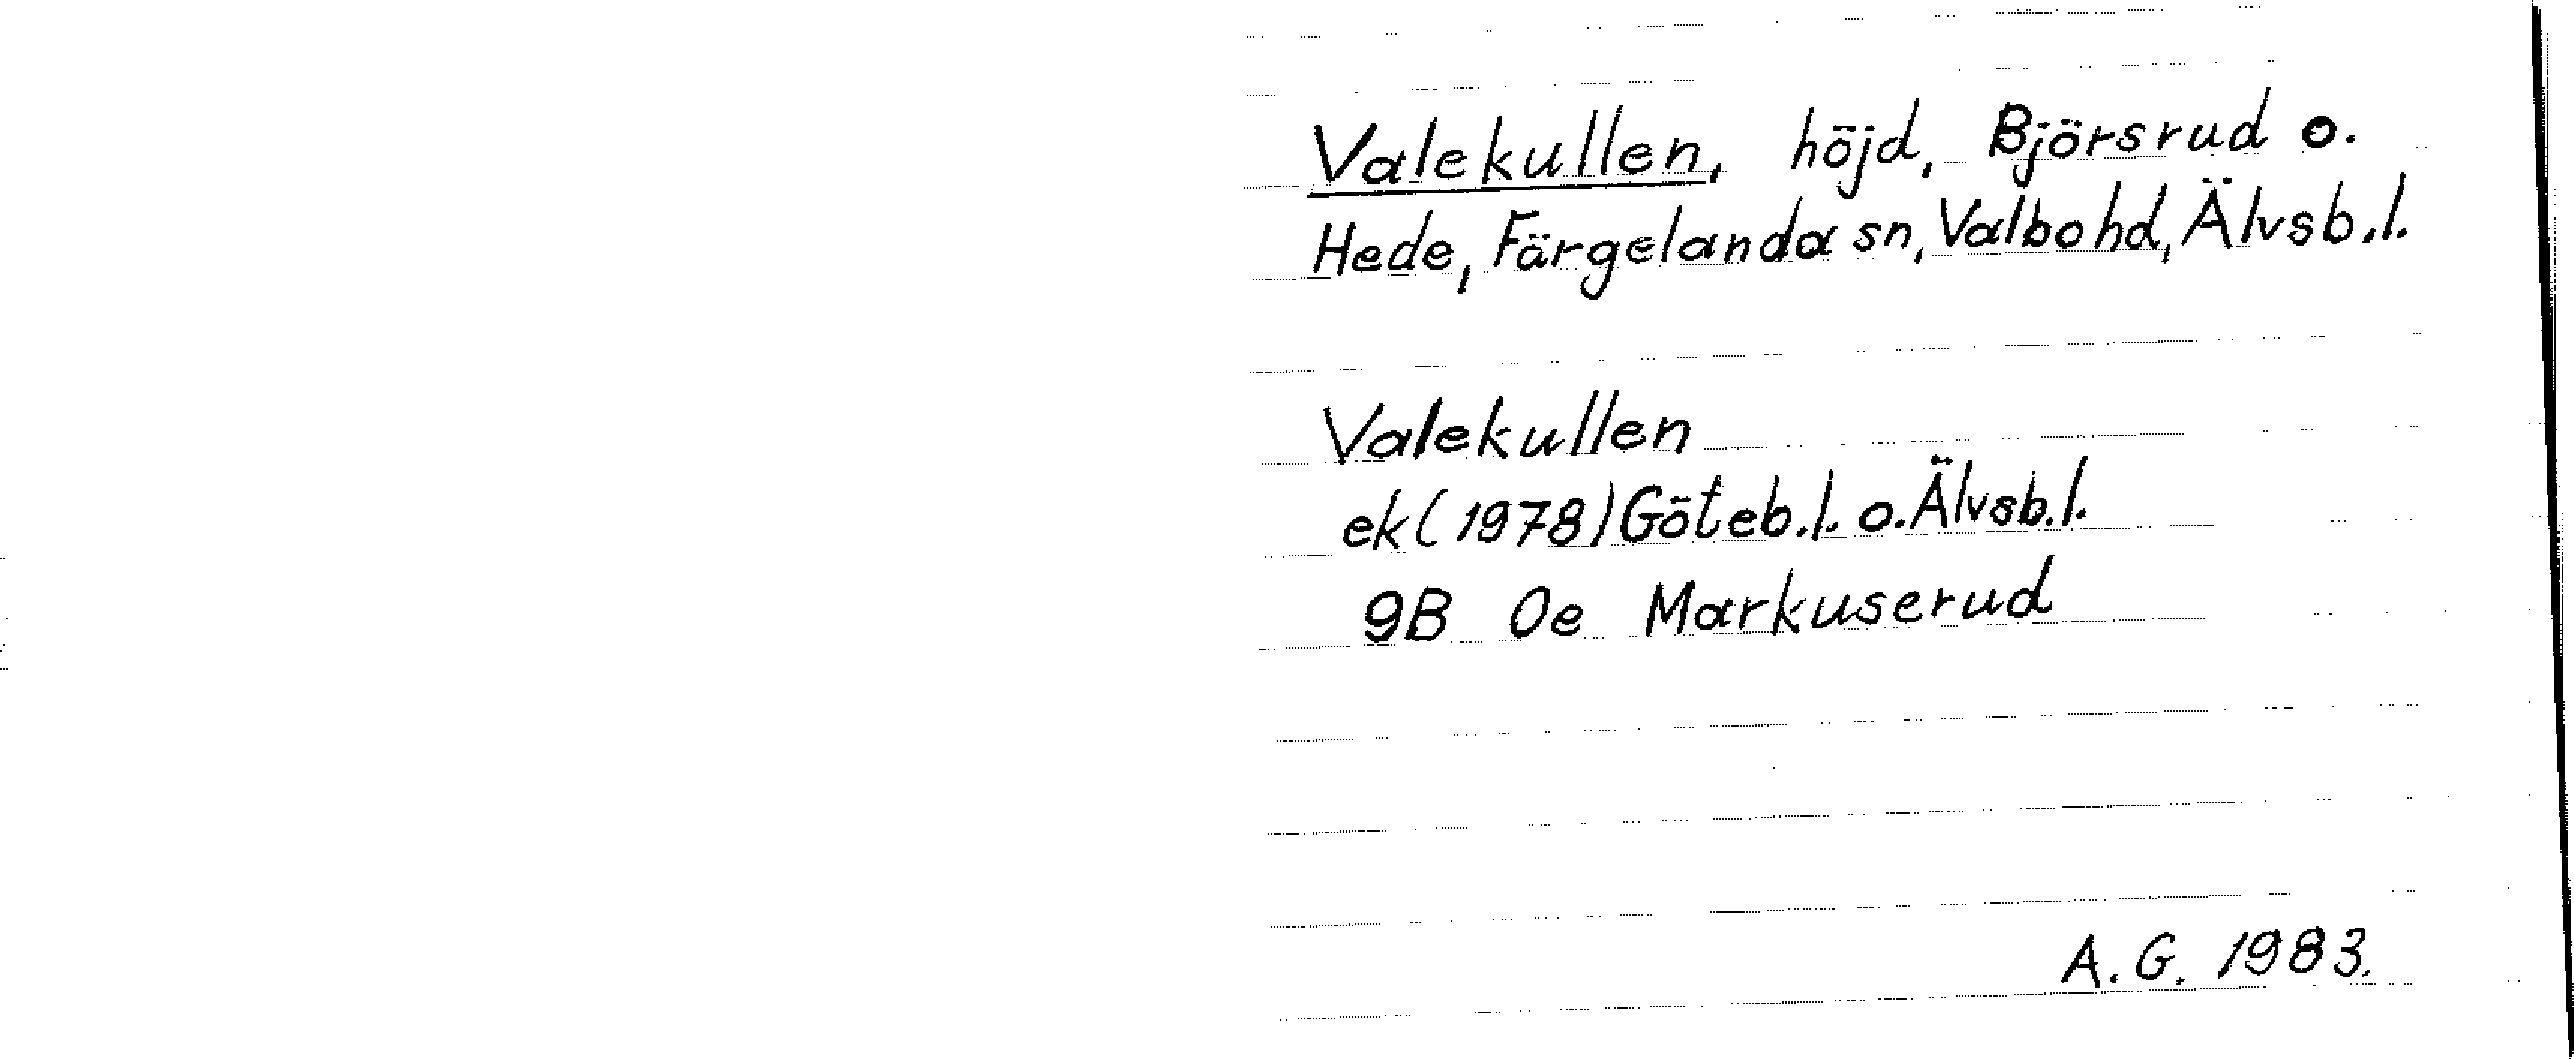 Valekullen, höjd, Björsrud o.
Hede, Färgelanda sn, Valbo hd, Älvsb.l.
Valekullen
ek (1978) Göteb.l. o. Älvsb.l.
9B 0e Markuserud
A.G. 1983.